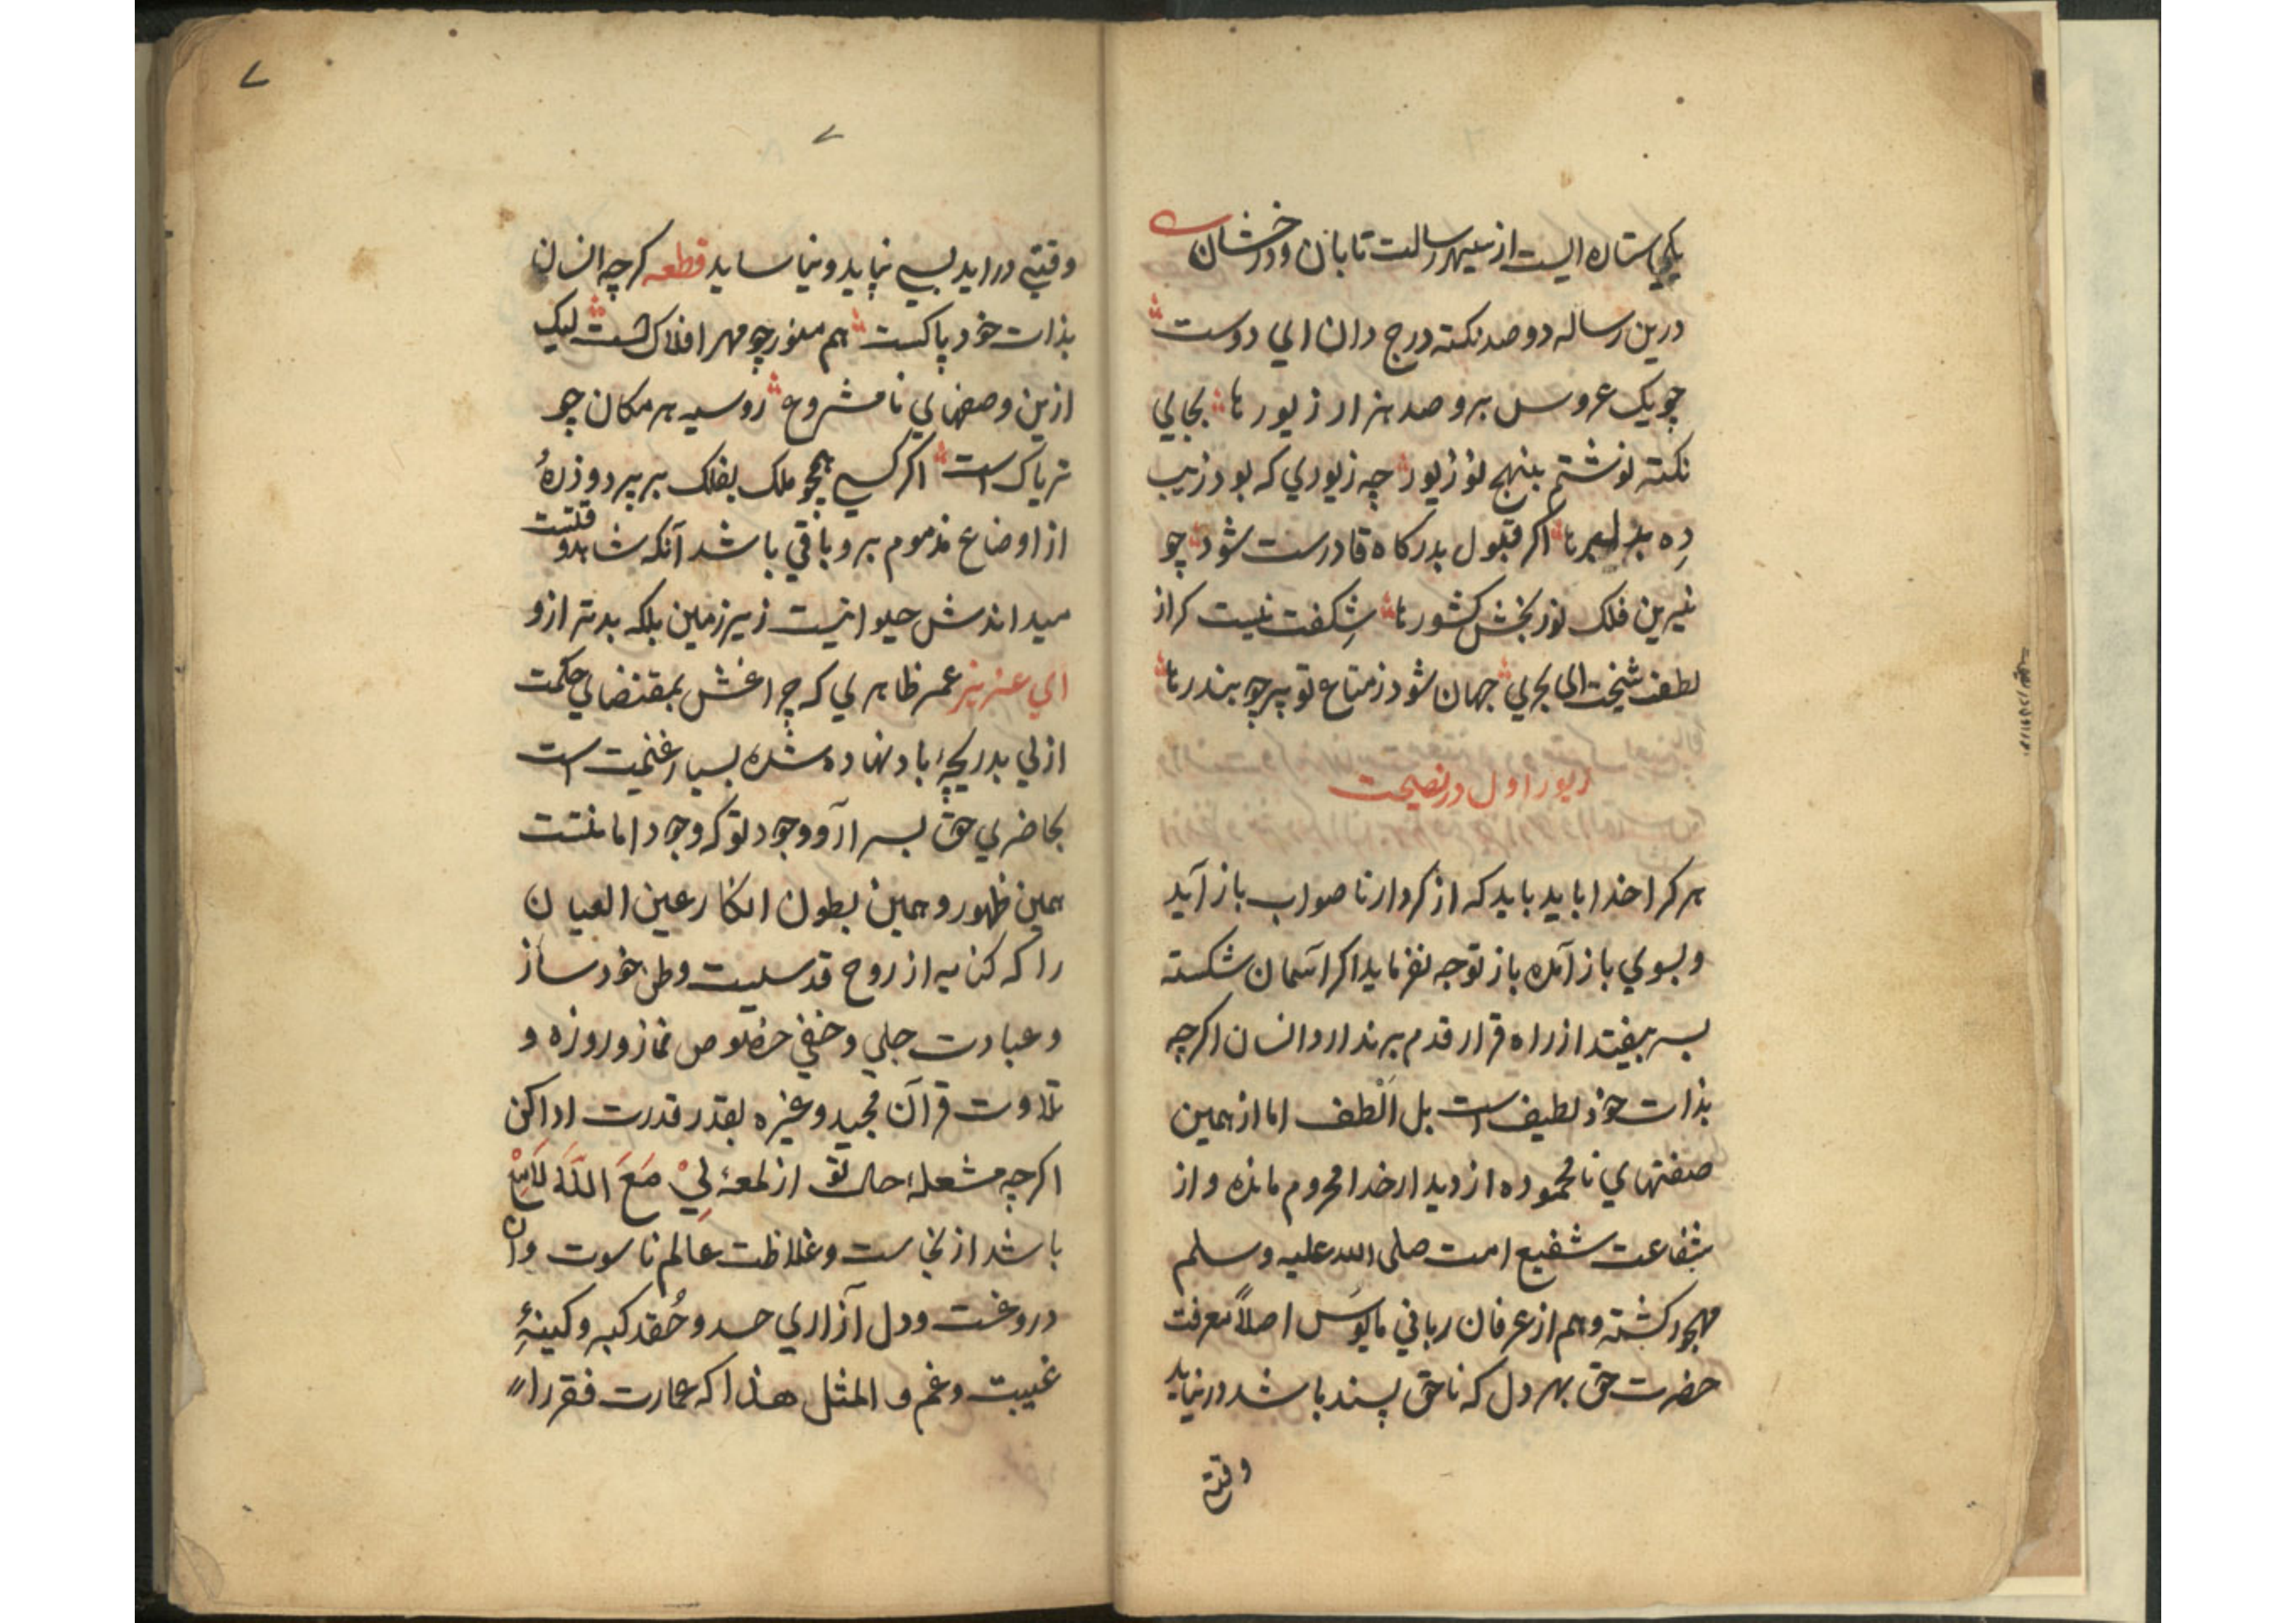 یکی ستاره ایست از سپهر رسالت تابان و درخشان
درین رساله دو صد نکته درج دان ای دوست
چو یک عروس برو صد هزار زیورها بجای
نکته نوشتم بنهج نو زیور چه زیوری که بود زیب
دِه اکر قبول بدرکاه قادرست شود چو
نیرین فلک نور بخش کشورها شِکفت نیست کر از
لطف شیخت ای بحری جهان شود ز متاع تو پر چو بندرها
زیور اول در نصیحت
هر کرا خدا باید باید که از کردار ناصواب باز آید
و بسوی باز آمده باز توجه نفرماید اکر آسمان شکسته
بسر بیفتد از راه قرار قدم برندارد انسان اکرچه
بذات خود لطیف است بل اَلطف اما از همین
صفتهای نامحموده از دیدار خدا محروم مانده و از
شفاعت شفیع امت صلی الله علیه وسلم
مهجور کشته و هم از عرفان ربانی مایوس اصلاً معرفت
حضرت حق بهر دل که ناحق پسند باشد در نیاید
وقتی
۷
۷
وقتی دراید بسی نپاید و نیاساید قطعه کرچه انسان
بذات خود پاکست هم منور چو مهر افلاکست لیک
ازین وصفهای نامشروع روسیه هر مکان چو
تریاک است اکر کسی همچو ملک بفلک بر پرد و ذرهٔ
از اوضاع مذموم برو باقی باشد آنکه شاهد وقتست
میداندش حیوانیست زیر زمین بلکه بدتر ازو
ای عزیز عمر ظاهری که چراغش بمقتضای حکمت
ازلی بدریچهٔ باد نهاده شده بسیار غنیمت است
بحاضری حق بسر آر و وجود تو که وجود امانتست
همین ظهور و همین بطون انکار عین العیان
را که کنایه از روح قدسیست وطن خود ساز
و عبادت جلی و خفی خصوص نماز و روزه و
تلاوت قرآن مجید و غیره بقدر قدرت ادا کن
اکرچه مشعلهٔ حالت تو از لمعهٔ لِیْ مَعَ اللَّه لامع
باشد از نجاست و غلاظت عالم ناسوت و آن
دروغست و دل آزاری حسد و حُقد کبر و کینهٔ
غیبت و غم و المثل هذا که عمارت فقر را